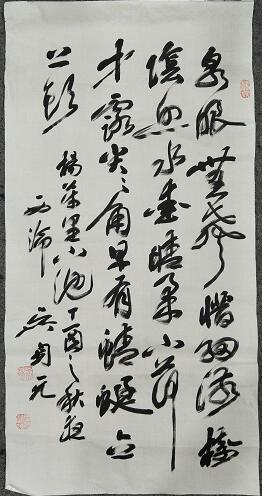 泉眼無聲惜細流樹
陰照水愛晴柔小荷
才露尖々角早有蜻蜓立
上頭
楊萬里小池丁酉之秋夜